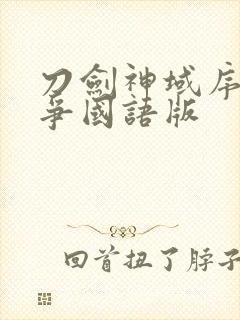 刀劍神域序
爭國語版
回首扭了脖子